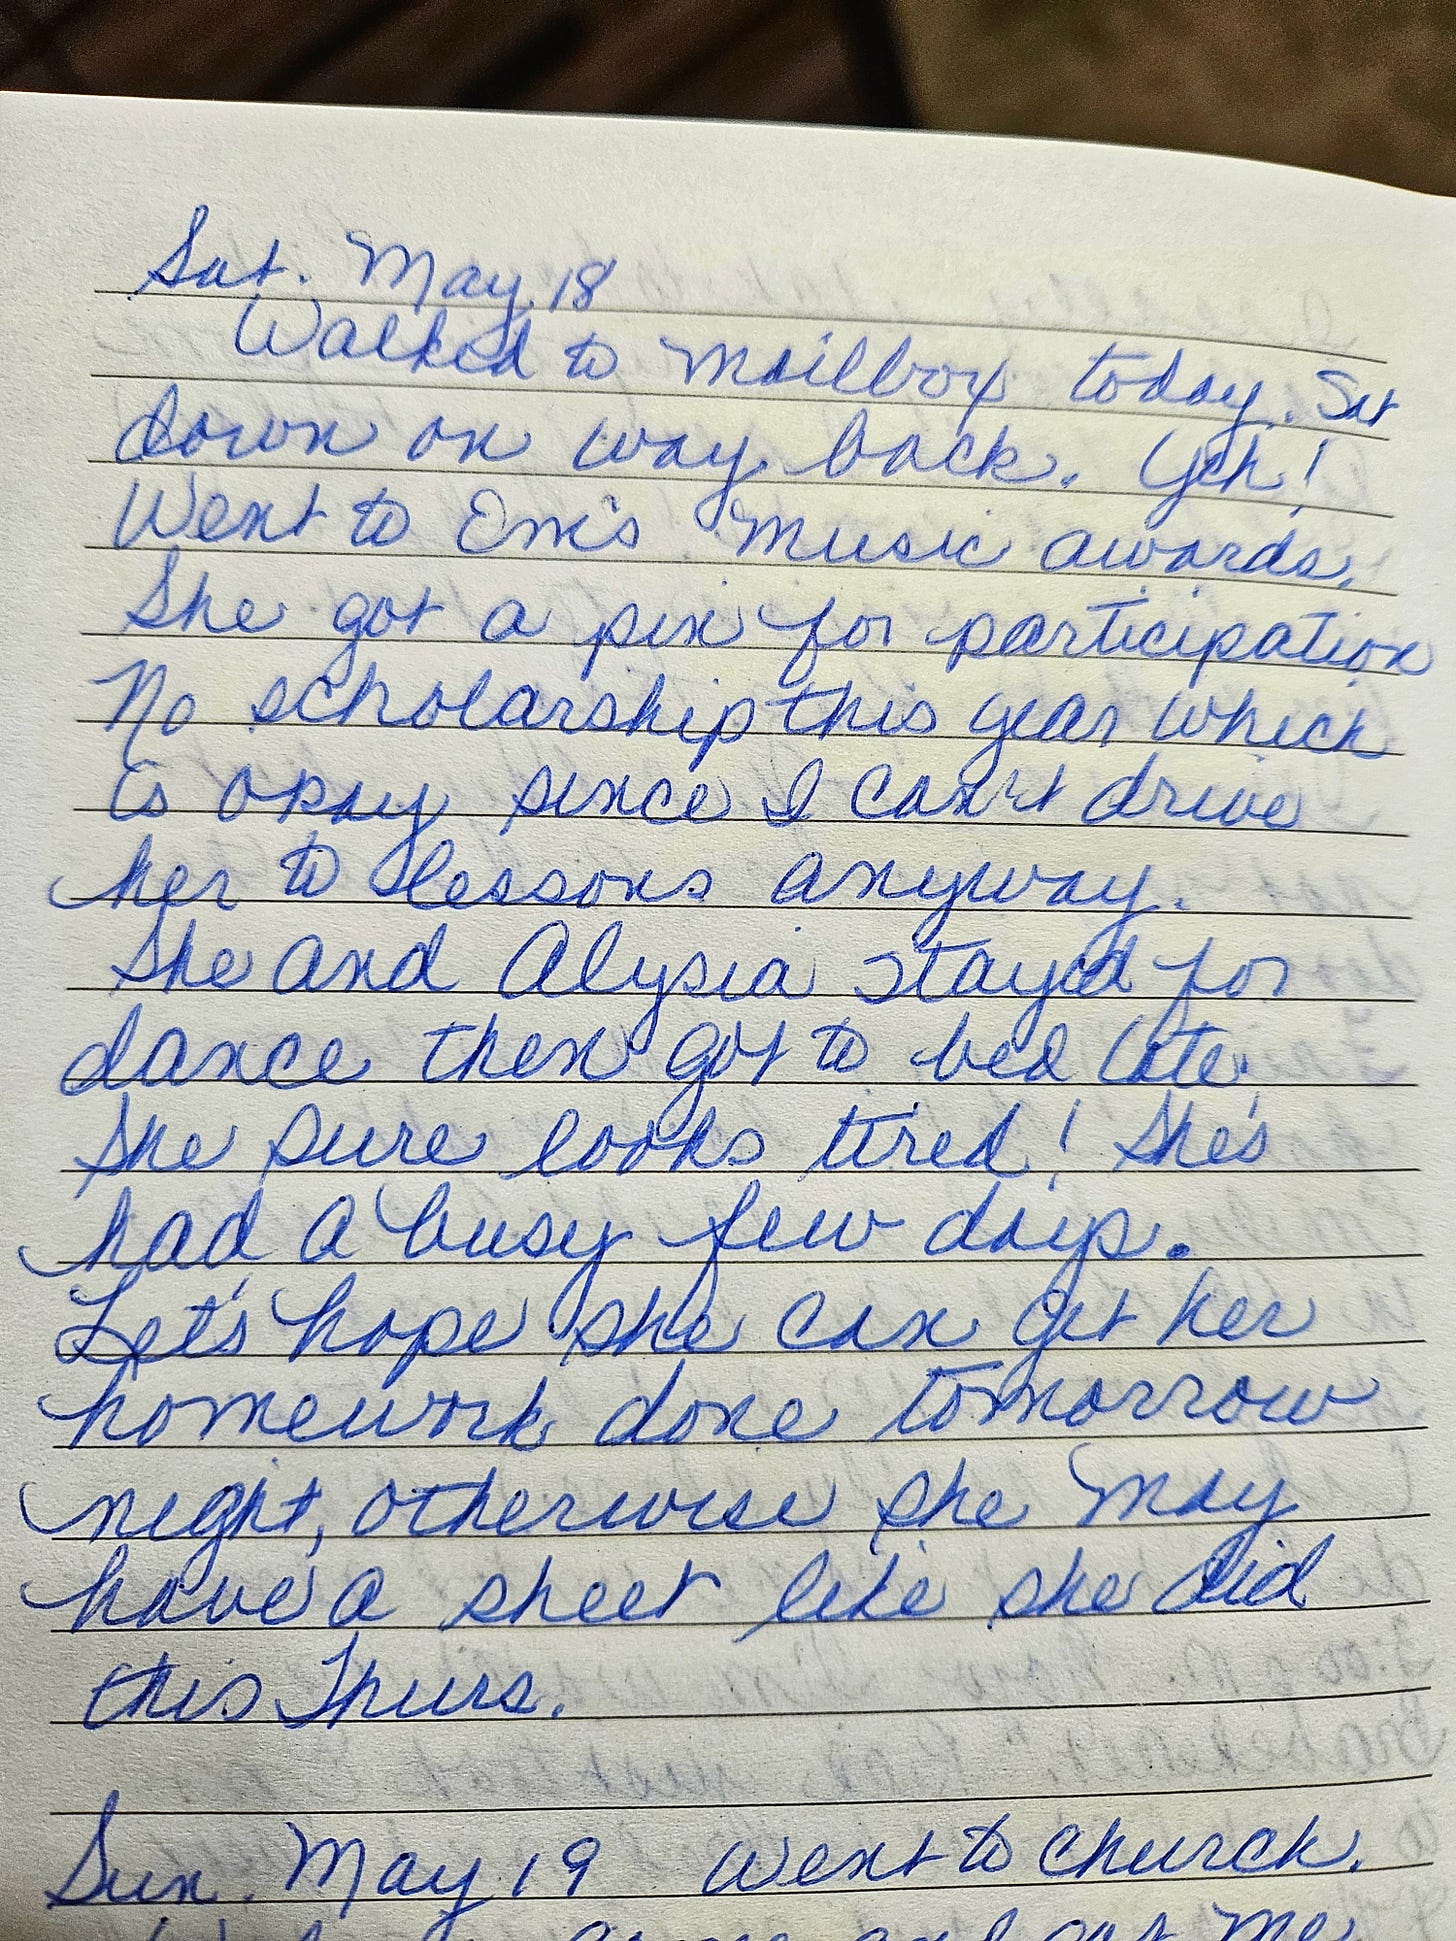 Sat. May 18
Walked to mailbox today. Sat
down on way back. Yeh!
Went to Em's music awards.
She got a pin for participation
No scholarship this year which
is okay since I can't drive
her to lessons anyway.
She and Alysia stayed for
dance then got to bed late.
She sure looks tired! She's
had a busy few days.
Let's hope she can get her
homework done tomorrow
night, otherwise she may
have a sheet like she did
this Thurs.
Sun. May 19 Went to church.
came and got me